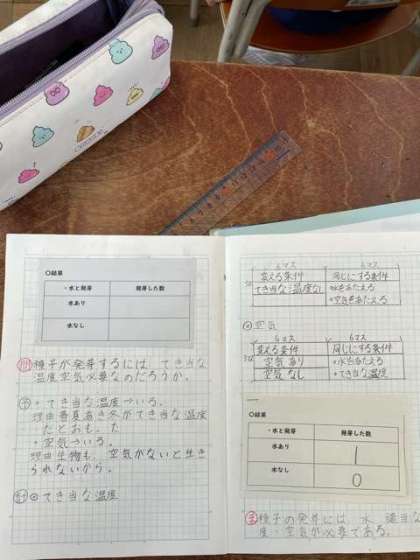 〇結果
・水と発芽 発芽した数
水あり
水なし
問 種子が発芽するには、てき当な
温度空気必要なのだろうか。
予 ・てき当な温度→いる。
たとおもった
・空気→いる。
理由生物も、空気がないと生き
られないから。
計 ⊙てき当な温度
6マス 6マス
変える条件 同じにする条件
てき当な温度なし ・水をあたえる
・空気をあたえる
⊙空気
6マス 6マス
変える条件 同じにする条件
空気あり ・水をあたえる
空気なし ・てき当な温度
〇結果
・水と発芽 発芽した数
水あり 1
水なし 0
種子の発芽には、水、適当な
温度・空気が必要である。